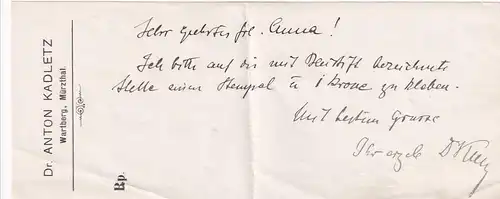 Dr. ANTON KADLETZ
Wartberg, Mürzthal.
Rp.
Sehr geehrtes Frl. Anna!
Ich bitte auf die mit Bleistift bezeichnete
Stelle einen Stempel à 1 Krone zu kleben.
Mit besten Grüssen
Ihr ergeb.